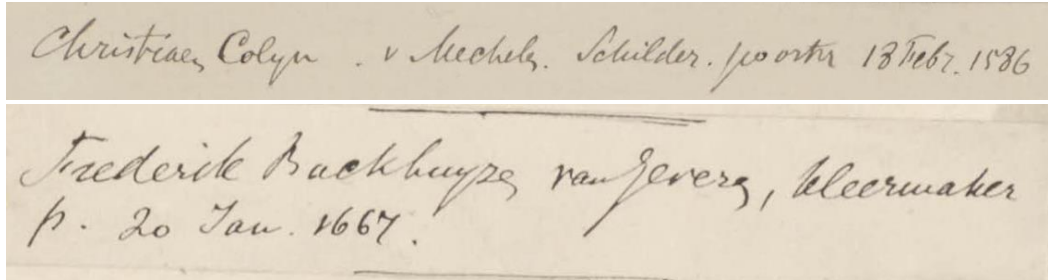 Christiaen Colyn . v Mechelen. Schilder. poorter 18 Febr. 1586
Frederik Backhuyzen van Jeveren, kleermaker
p. 20 Jan. 1667.